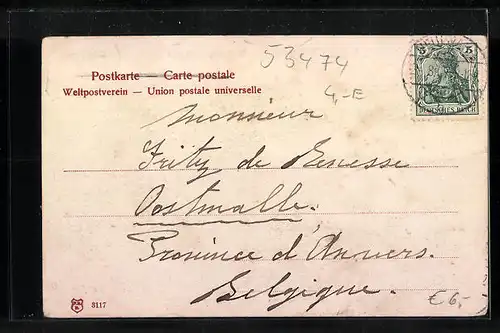 53474
Postkarte — Carte postale
Weltpostverein — Union postale universelle
4,-E
5 5
DEUTSCHES REICH
Monsieur
Fritz de Renesse
Oostmalle.
Province d'Anvers.
Belgique.
3117
€ 6,-